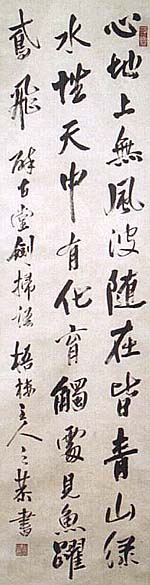 心地上無風波随在皆青山綠
水性天中有化育觸處見魚躍
鳶飛 醉古堂劍掃語 梧 主人 書